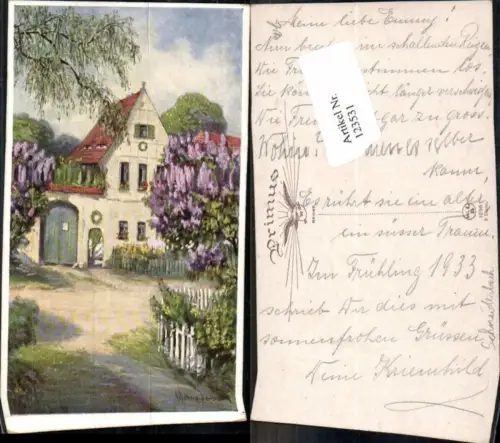 Meine liebe Emmy!
Nun brechen in schallenden Reigen
Die Fr stimmen los.
Sie kön cht länger verschweigen
Die Freu gar zu gross.
Wohin, selber
kaum,
Es rührt sie ein alter
ein süsser Traum.
Im Frühling 1933
schrieb Dir dies mit
sonnenfrohen Grüssen
Deine Kriemhild
Artikel Nr.
123531
Primus